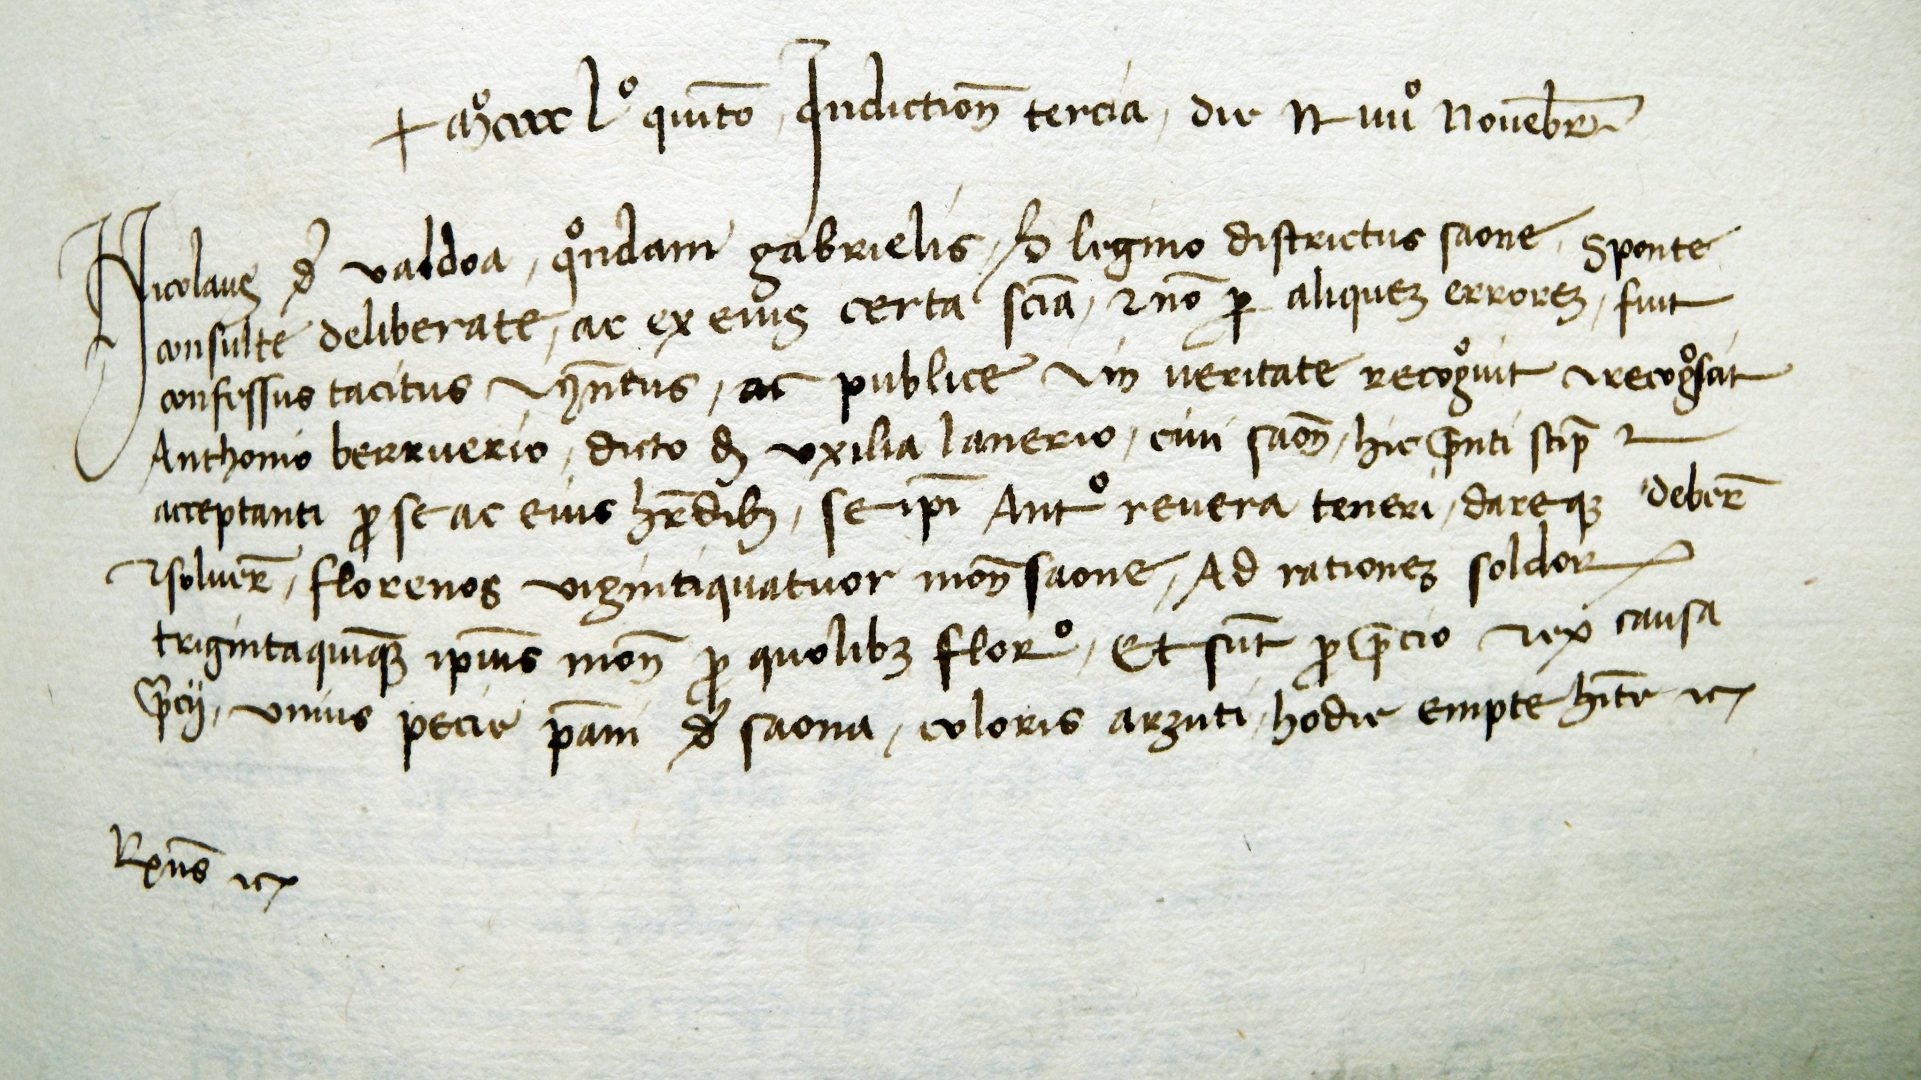 + Mºcccc Lº quinto, Indiction̄ tercia, die xxiiiiº Nouēbr̄
Nicolaus de valdoa, qºndam gabrielis, de legino districtus saone, Sponte
consulte deliberate, ac ex eius certa sciā, et nō p aliquez errorez, fuit
confessus tacitus et 9tēntus, ac publice et in ueritate recogºuit et recogºscit
Anthonio berruerio, dicto de vxilia lanerio, ciui saon̄, hic pñti stip̄ et
acceptanti pro se ac eius her̄dibȝ, se ip̄i Antº reuera teneri, dareqȝ deber̄
et soluer̄, florenos vigintiquatuor mon̄ saone, Ad rationez soldor
trigintaquīqȝ ip̄ius mon̄ pro quolibȝ florº, Et sūnt pro p̄cio et ex causa
p̄cij, vnius pecie pāni de saona, coloris arzuti, hodie empte hīte etc
Rx̄ns etc